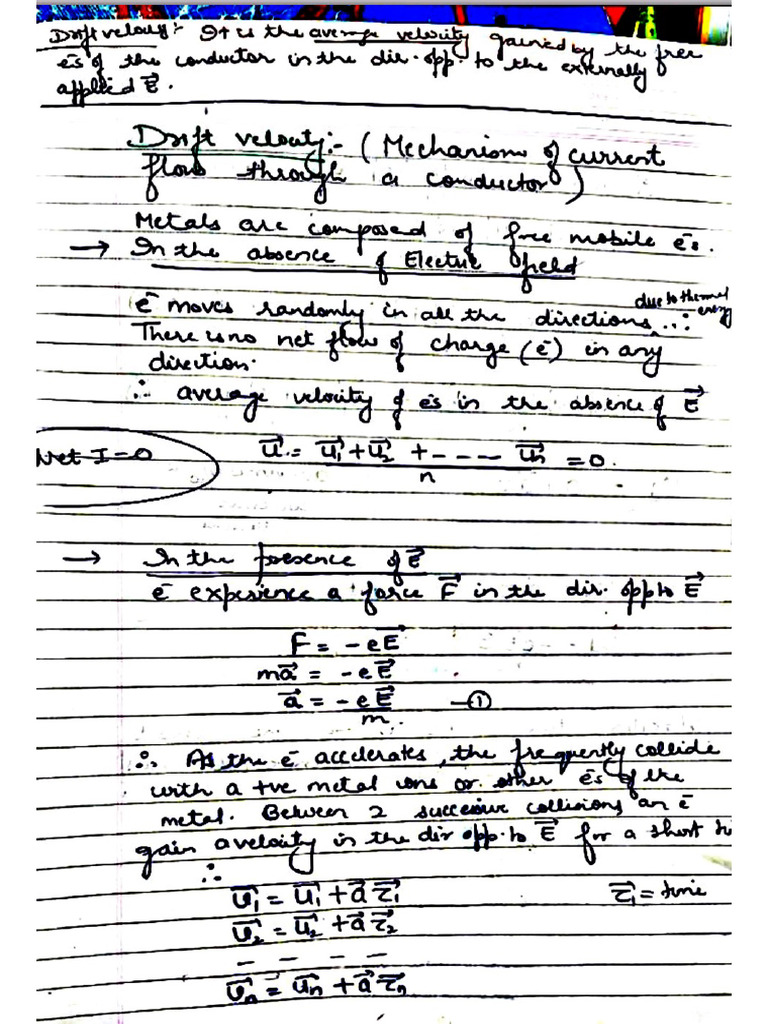 Drift velocity:- It is the average velocity gained by the free
e⁻s of the conductor in the dir. opp. to the externally
applied E⃗.
Drift velocity:- (Mechanism of current
flow through a conductor)
Metals are composed of free mobile e⁻s.
→ In the absence of Electric field
e⁻ moves randomly in all the directions due to thermal energy ∵
There is no net flow of charge (e⁻) in any
direction.
∴ average velocity of e⁻s in the absence of E⃗
Net I = 0
u⃗ = u⃗₁ + u⃗₂ + - - - - u⃗n / n = 0.
→ In the presence of E⃗
e⁻ experience a force F⃗ in the dir. opp to E⃗
F = -eE⃗
ma⃗ = -eE⃗
a⃗ = -eE⃗ / m. —①
∴ As the e⁻ accelerates, the frequently collide
with a +ve metal ions or other e⁻s of the
metal. Between 2 successive collisions an e⁻
gain a velocity in the dir opp. to E⃗ for a short
∴
v⃗₁ = u⃗₁ + a⃗ τ⃗₁ τ⃗₁ = time
v⃗₂ = u⃗₂ + a⃗ τ⃗₂
– – – –
v⃗n = u⃗n + a⃗ τ⃗n